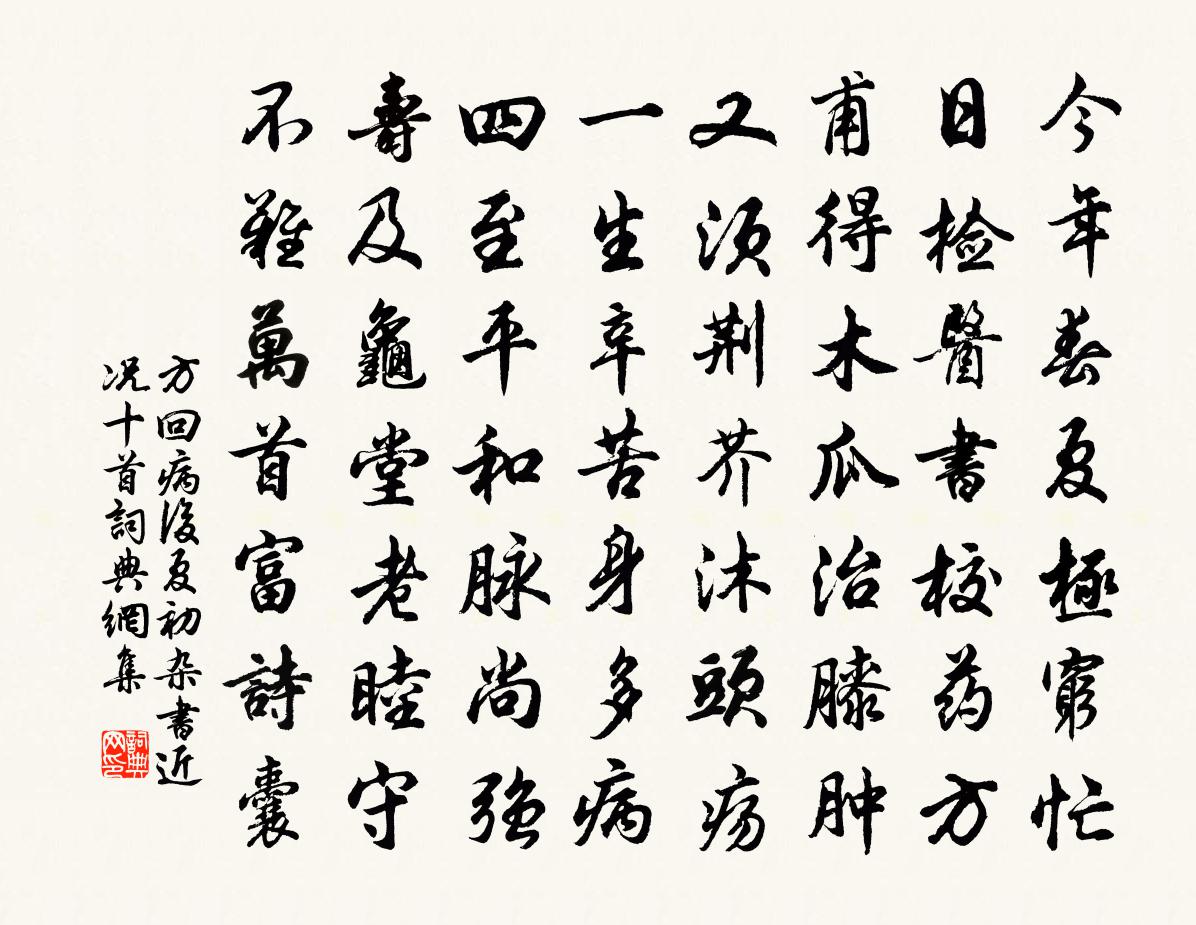 今年春夏極窮忙
日檢醫書校药方
甫得木瓜治膝肿
又须荆芥沐頭疡
一生辛苦身多病
四至平和脉尚强
壽及龜堂老睦守
不難萬首富詩囊
方回病後夏初杂書近
况十首詞典網集
詞典网印